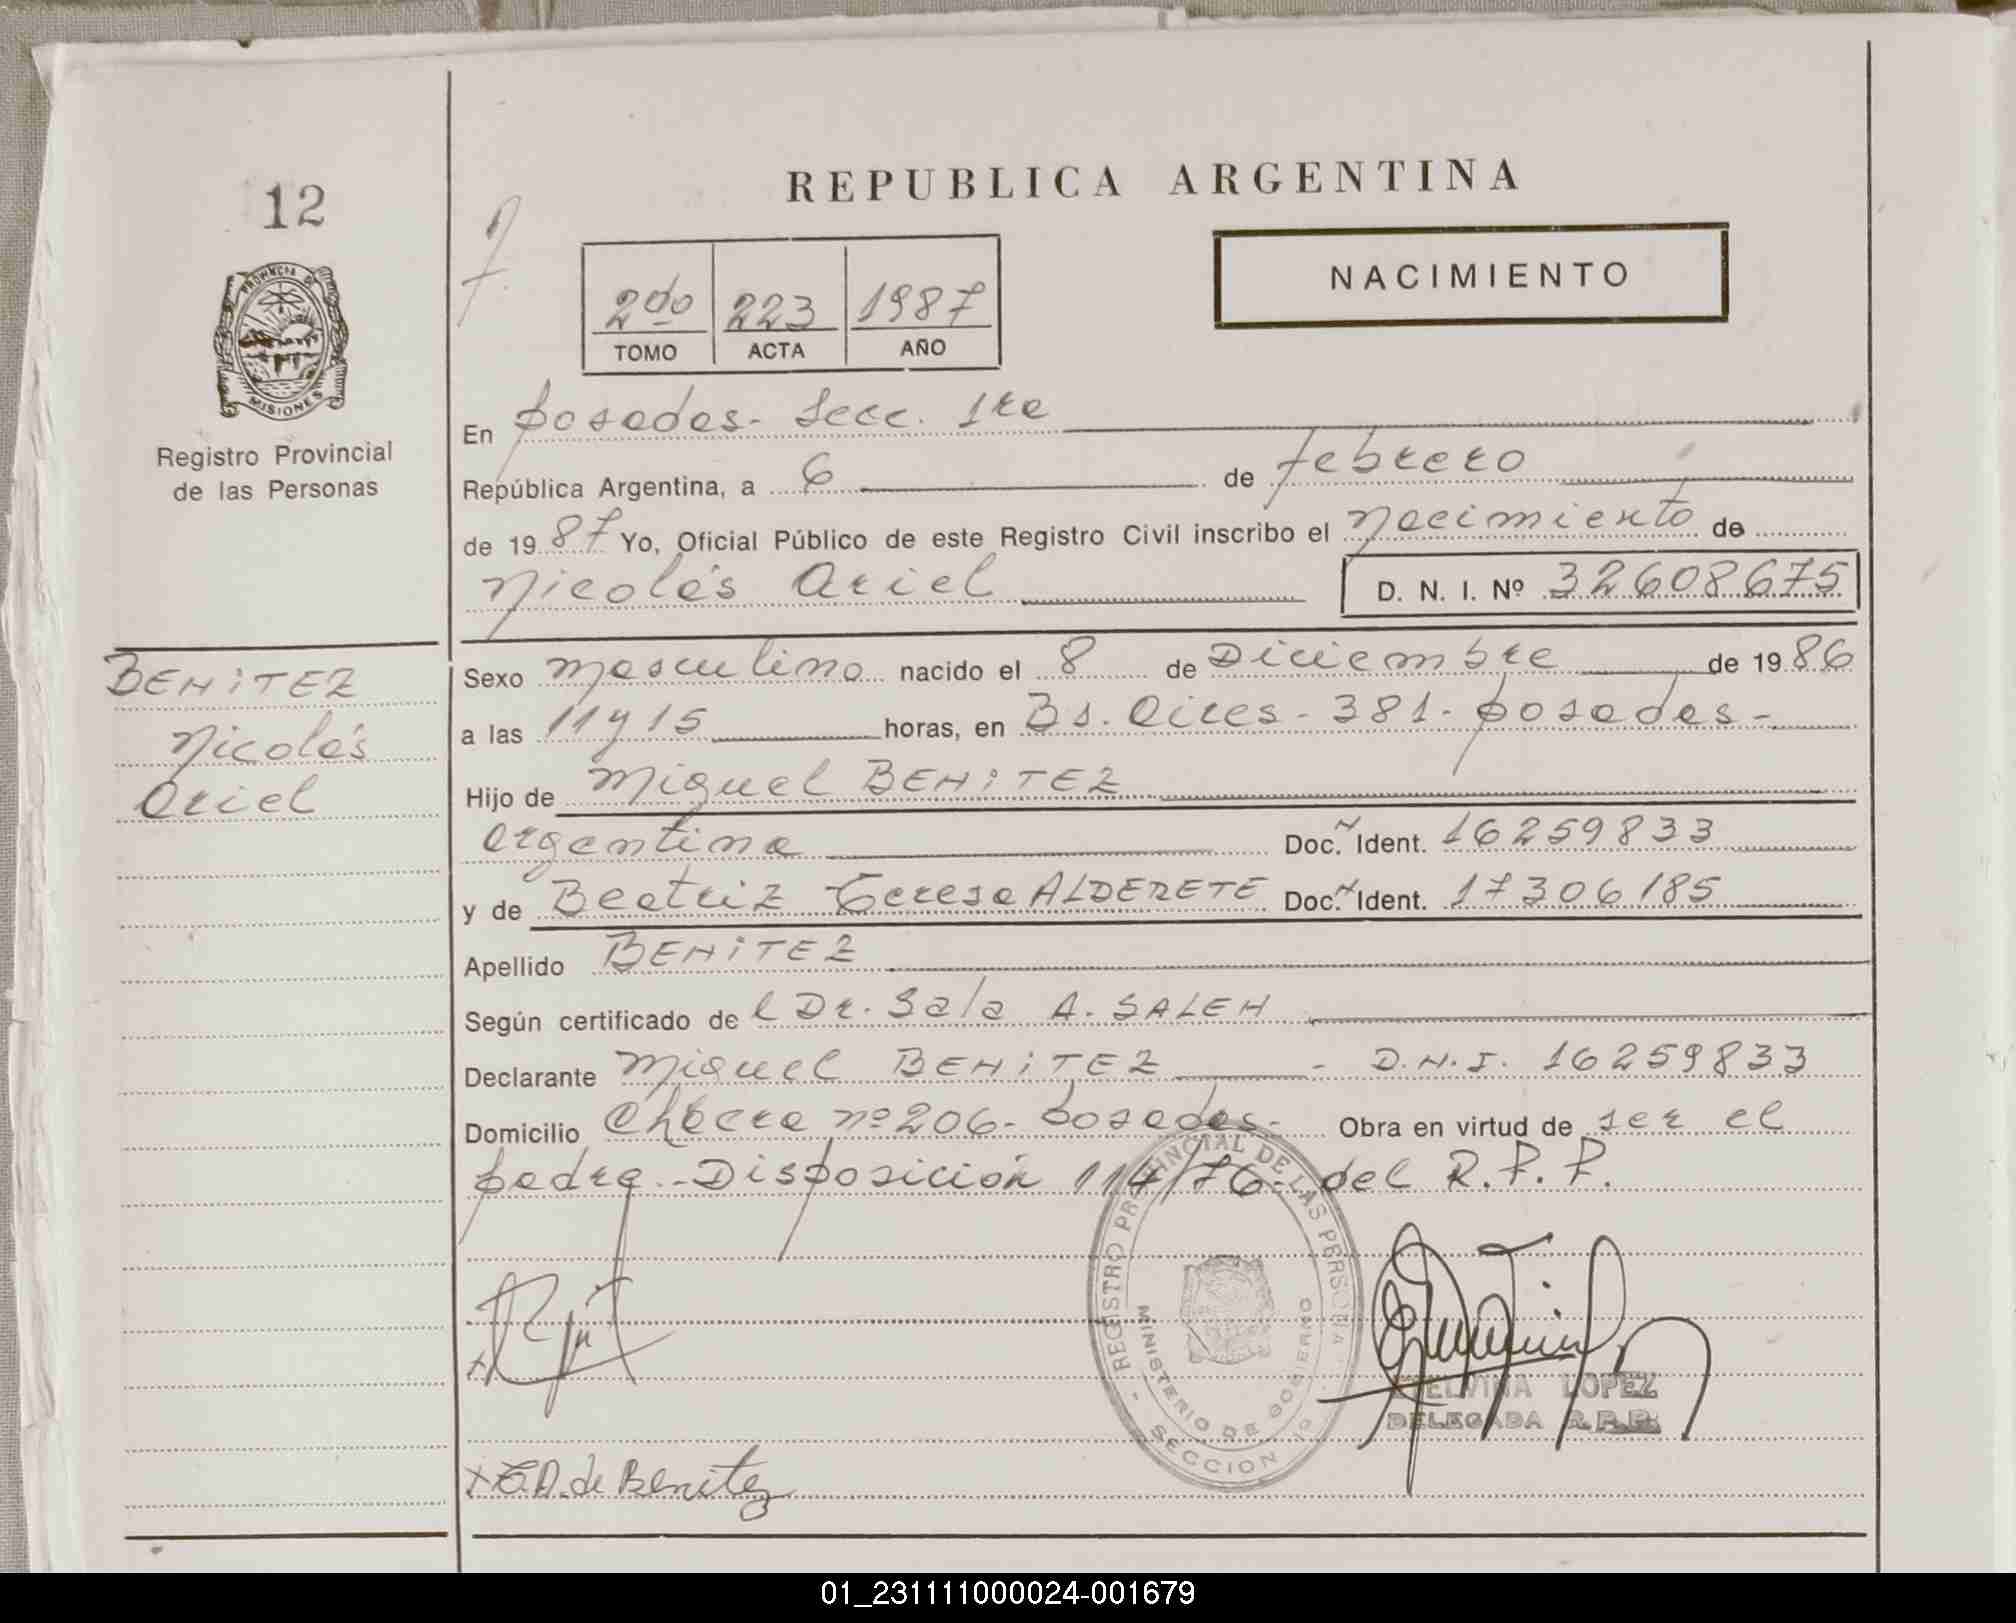 12
PROVINCIA DE
MISIONES
Registro Provincial
de las Personas
REPUBLICA ARGENTINA
NACIMIENTO
2do 223 1987
TOMO ACTA AÑO
En Posadas - Secc. 1ra
República Argentina, a 6 de febrero
de 1987 Yo, Oficial Público de este Registro Civil inscribo el nacimiento de
Nicolás Ariel D. N. I. Nº 32608675
BENiTEZ
Nicolás
Ariel
Sexo masculino nacido el 8 de Diciembre de 1986
a las 11 y 15 horas, en Bs. Aires - 381 - Posadas -
Hijo de Miguel BENiTEZ
argentino Doc. N Ident. 16259833
y de Beatriz Teresa ALDERETE Doc. N Ident. 17306185
Apellido BENiTEZ
Según certificado de l Dr. Sala A. SALEH
Declarante Miguel BENiTEZ - D.N.I. 16259833
Domicilio Chacra nº 206 - Posadas - Obra en virtud de ser el
padre - Disposición 114/76 - del R.P.P.
REGISTRO PROVINCIAL DE LAS PERSONAS
MINISTERIO DE GOBIERNO
SECCION 1º
ETELVINA LOPEZ
DELEGADA R.P.P.
x
x de Benitez
01_231111000024-001679